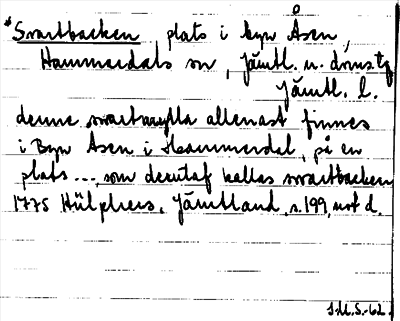 *Svartbacken plats i byn Åsen,
Hammerdals sn, Jämtl. n. domstg
Jämtl. l.
denne svartmylla allenast finnes
i Byn Åsen i Hammerdal, på en
plats ..., som deraf kallas svartbacken
1775 Hülphers, Jämtland, s. 199, not d.
J.M.S.-62.